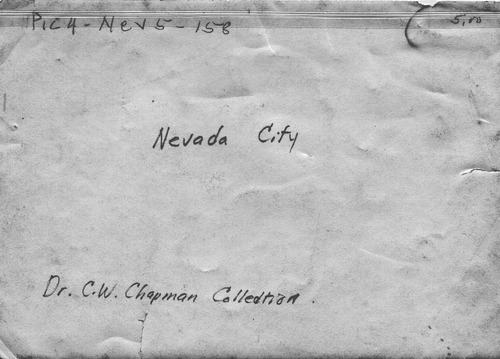 Pic 4 - Nev 5 - 158
5.00
Nevada City
Dr. C.W. Chapman Colledtion.